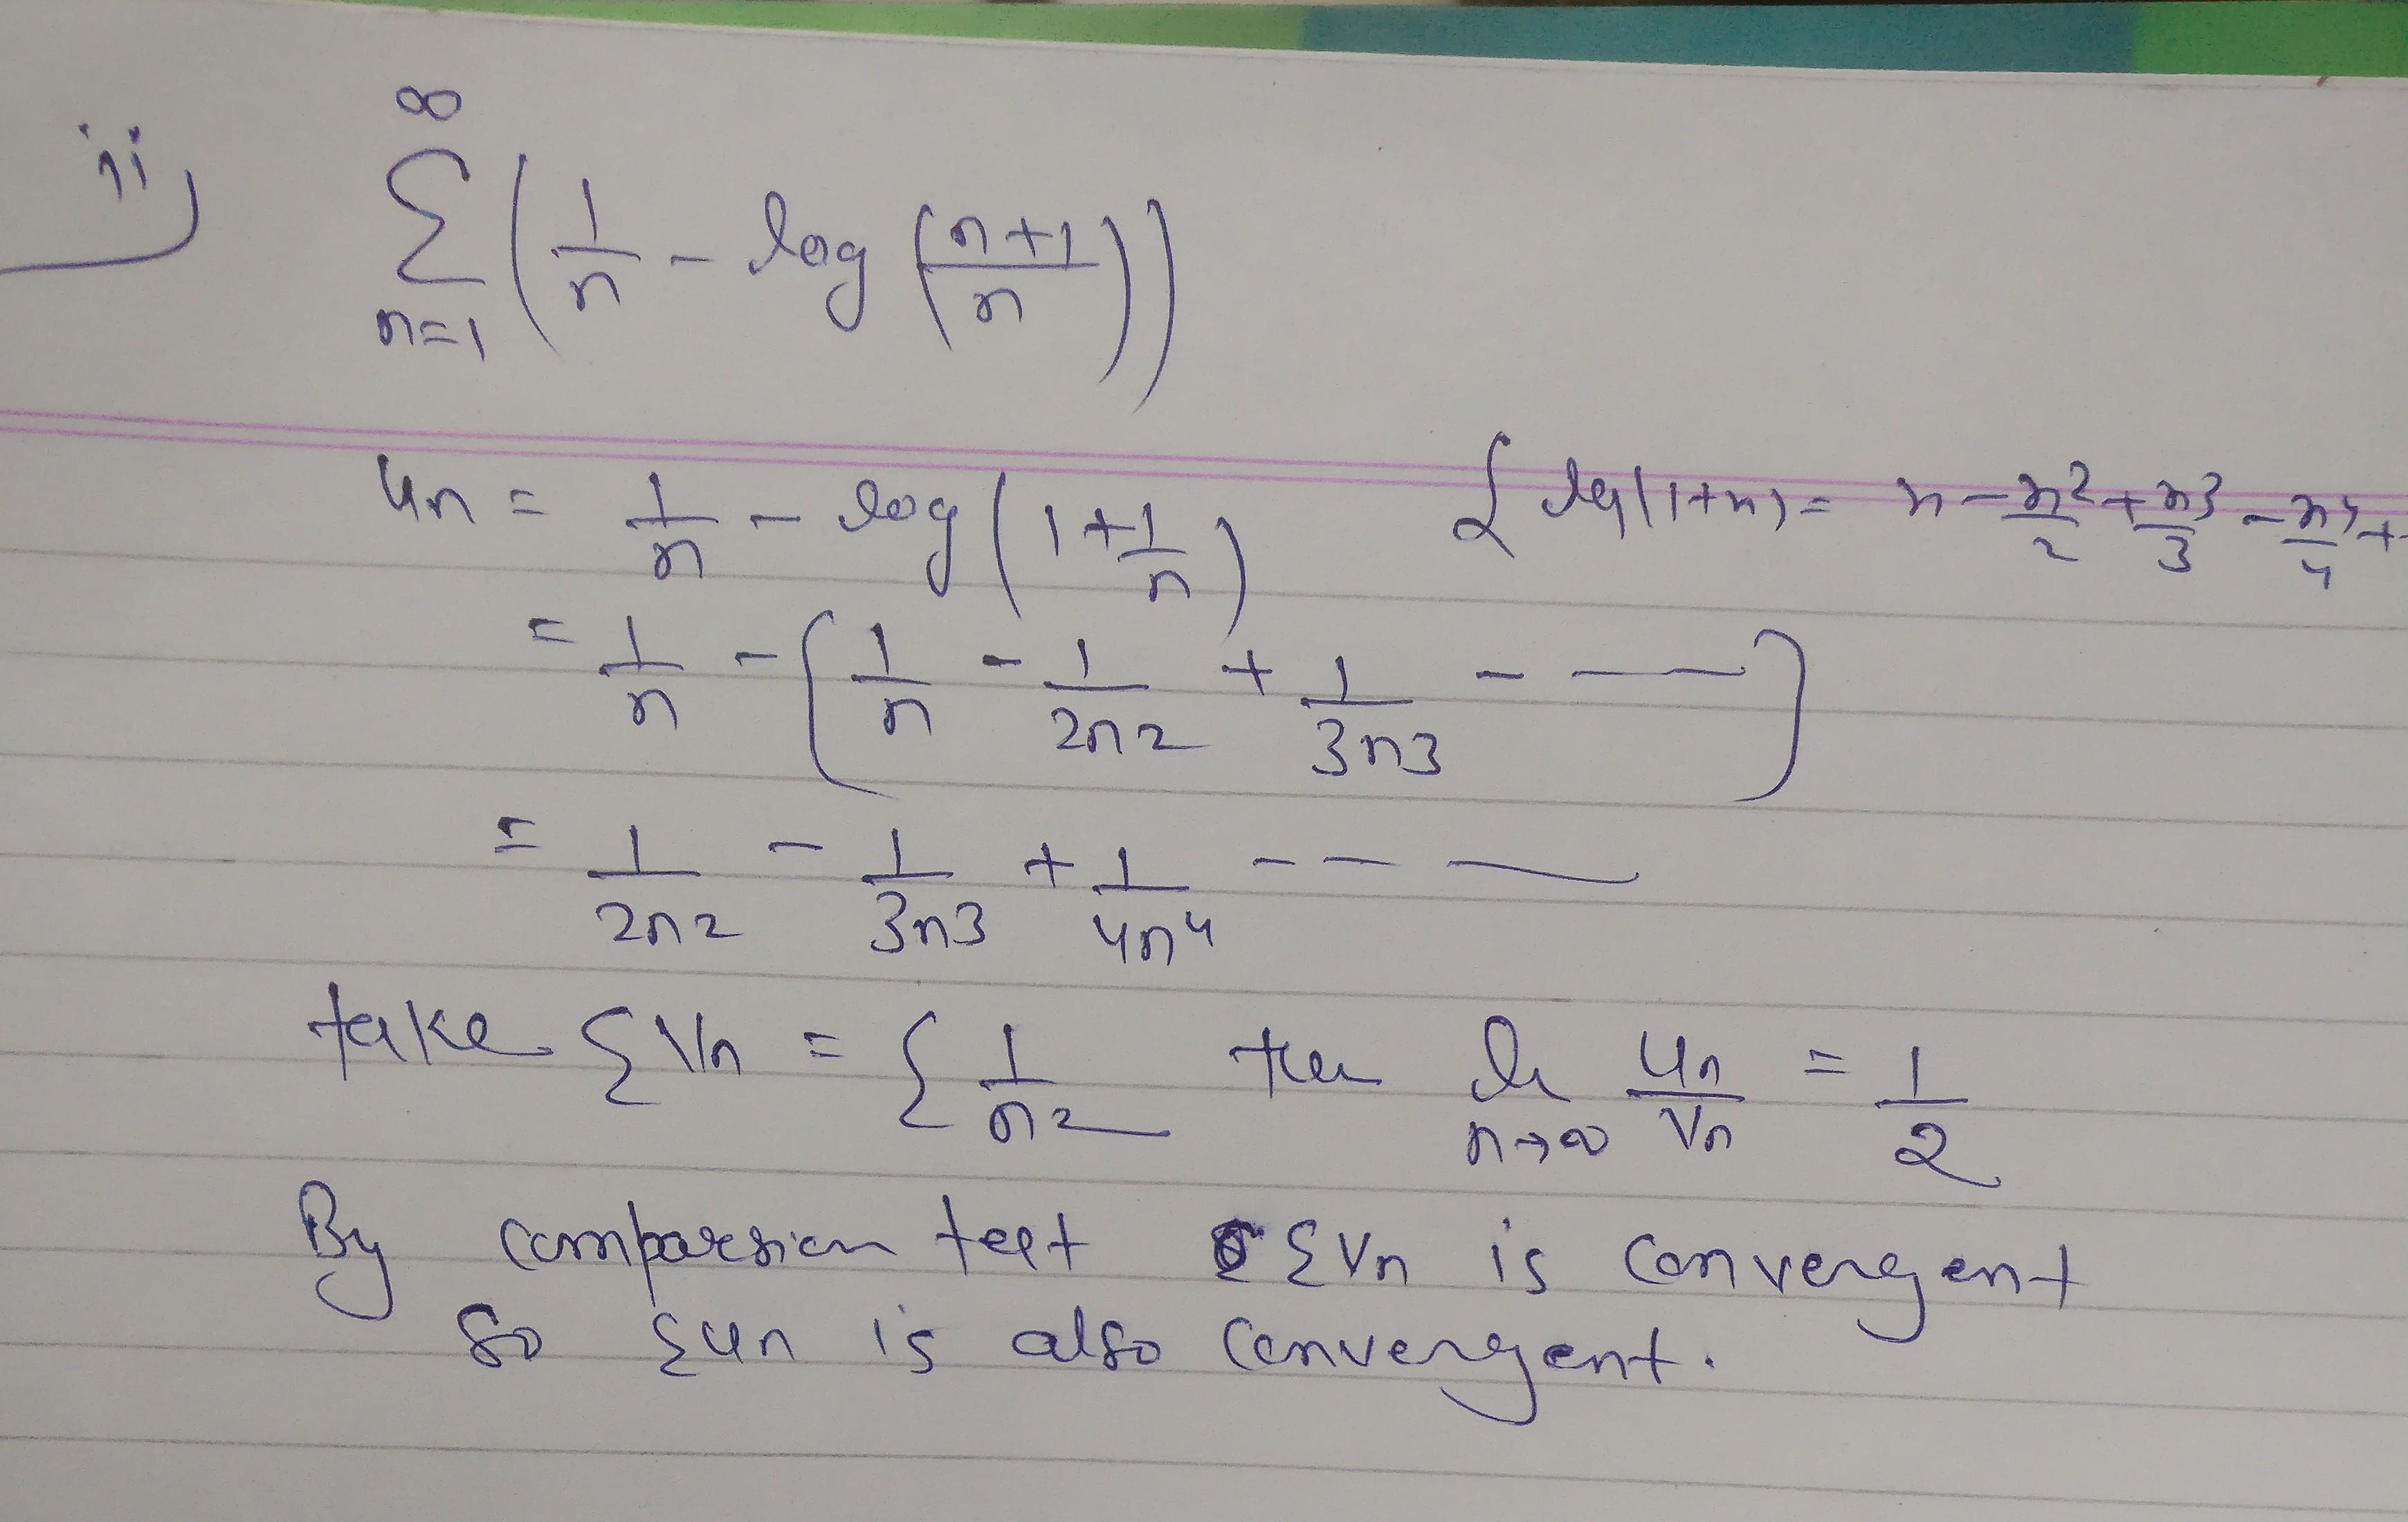 ii) ∞ Σ n=1 (1/n - log ((n+1)/n))
un = 1/n - log (1+1/n) { log(1+n) = n - n²/2 + n³/3 - n⁴/4 + -
= 1/n - [1/n - 1/2n2 + 1/3n3 - —]
= 1/2n2 - 1/3n3 + 1/4n4 - - —
take Σvn = Σ 1/n2 then n→∞ un/vn = 1/2
By comparsion test Σvn is convergent
So Σun is also convergent.